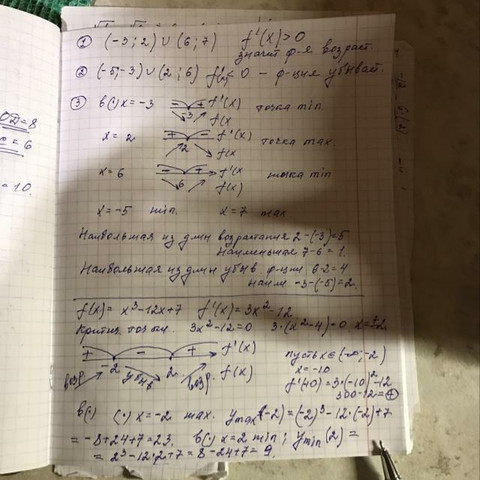 ① (-3; 2) ∪ (6; 7) f'(x) > 0
значит ф-я возраст.
② (-5;-3) ∪ (2; 6) f'(x)< 0 - ф-ция убывает.
③ в (·) x = -3 - + f'(x) точка min.
-3 f(x)
x = 2 + - f'(x) точка max
2 f(x)
x = 6 - + f'(x) точка min
6 f(x)
x = -5 min. x = 7 max
Наибольшая из длин возрастания 2-(-3)=5
Наименьшая 7-6 = 1.
Наибольшая из длин убыв. ф-ции 6-2 = 4
наим -3-(-5)=2.
f(x) = x³-12x+7 f'(x) = 3x²-12
Критич. точки. 3x²-12=0 3·(x²-4)=0 x=±2
+ - + f'(x)
-2 2 f(x)
возр. убыв возр.
пусть x∈(-∞,-2)
x = -10
f'(-10)=3·(-10)²-12
300-12=⊕
в (·) (·) x = -2 max. y max(-2) = (-2)³-12·(-2)+7
= -8+24+7=23. в (·) x = 2 min; y min(2) =
= 2³-12·2+7 = 8-24+7= 9.
ОД=8
= 6
= 10.